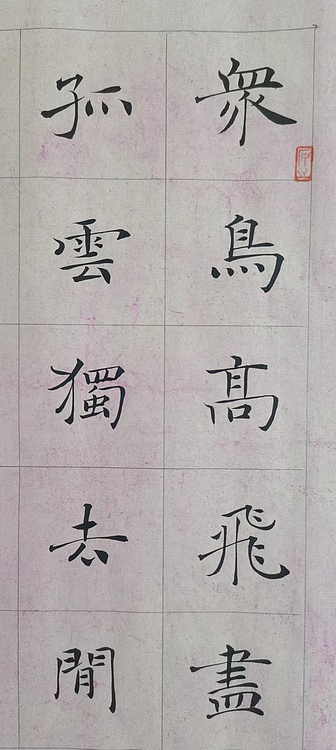 眾鳥高飛盡
孤雲獨去閒